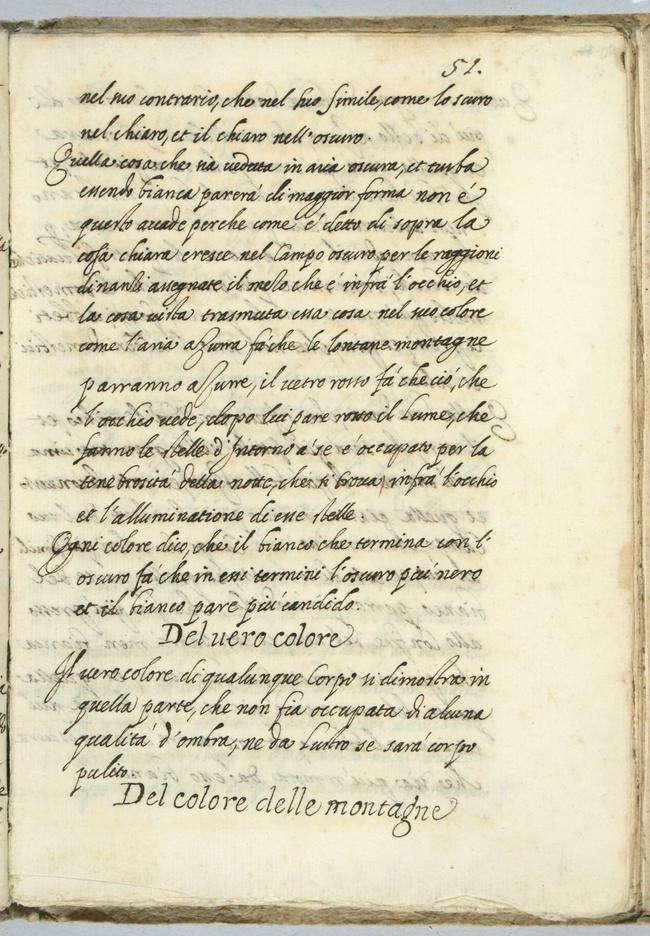 51.
nel suo contrario, che nel suo simile, come lo scuro
nel chiaro, et il chiaro nell'oscuro.
Quella cosa che sia veduta in aria oscura, et turba
essendo bianca parerà di maggior forma non è
questo accade perche come è detto di sopra la
cosa chiara cresce nel Campo oscuro per le raggioni
dinanti assegnate il melo che è infrà l'occhio, et
la cosa vista trasmuta essa cosa nel suo colore
come l'aria azurra fà che le lontane montagne
parranno azure, il vetro rosso fà che ciò, che
l'occhio vede, dopo lui pare rosso il Lume, che
fanno le stelle d'Intorno à se è occupato per la
tenebrosità della notte, che si trova infrà l'occhio
et l'alluminatione di esse stelle.
Ogni colore dico, che il bianco che termina con l'
oscuro fà che in essi termini l'oscuro più nero
et il bianco pare più candido.
Del vero colore
Il vero colore di qualunque Corpo si dimostra in
quella parte, che non sia occupata di alcuna
qualità d'ombra, ne da Lustro se sarà corpo
pulito.
Del colore delle montagne